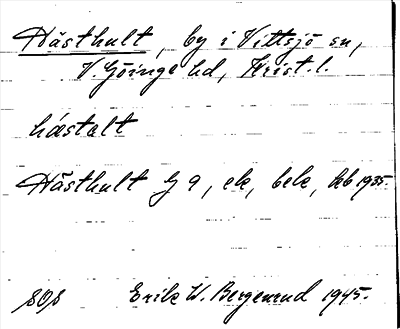 Hästhult, by i Vittsjö sn,
V. Göinge hd, Krist. l.
hæstalt
Hästhult G 9, ek, bek, hb 1935.
SOS Erik W. Bergenrud 1945.